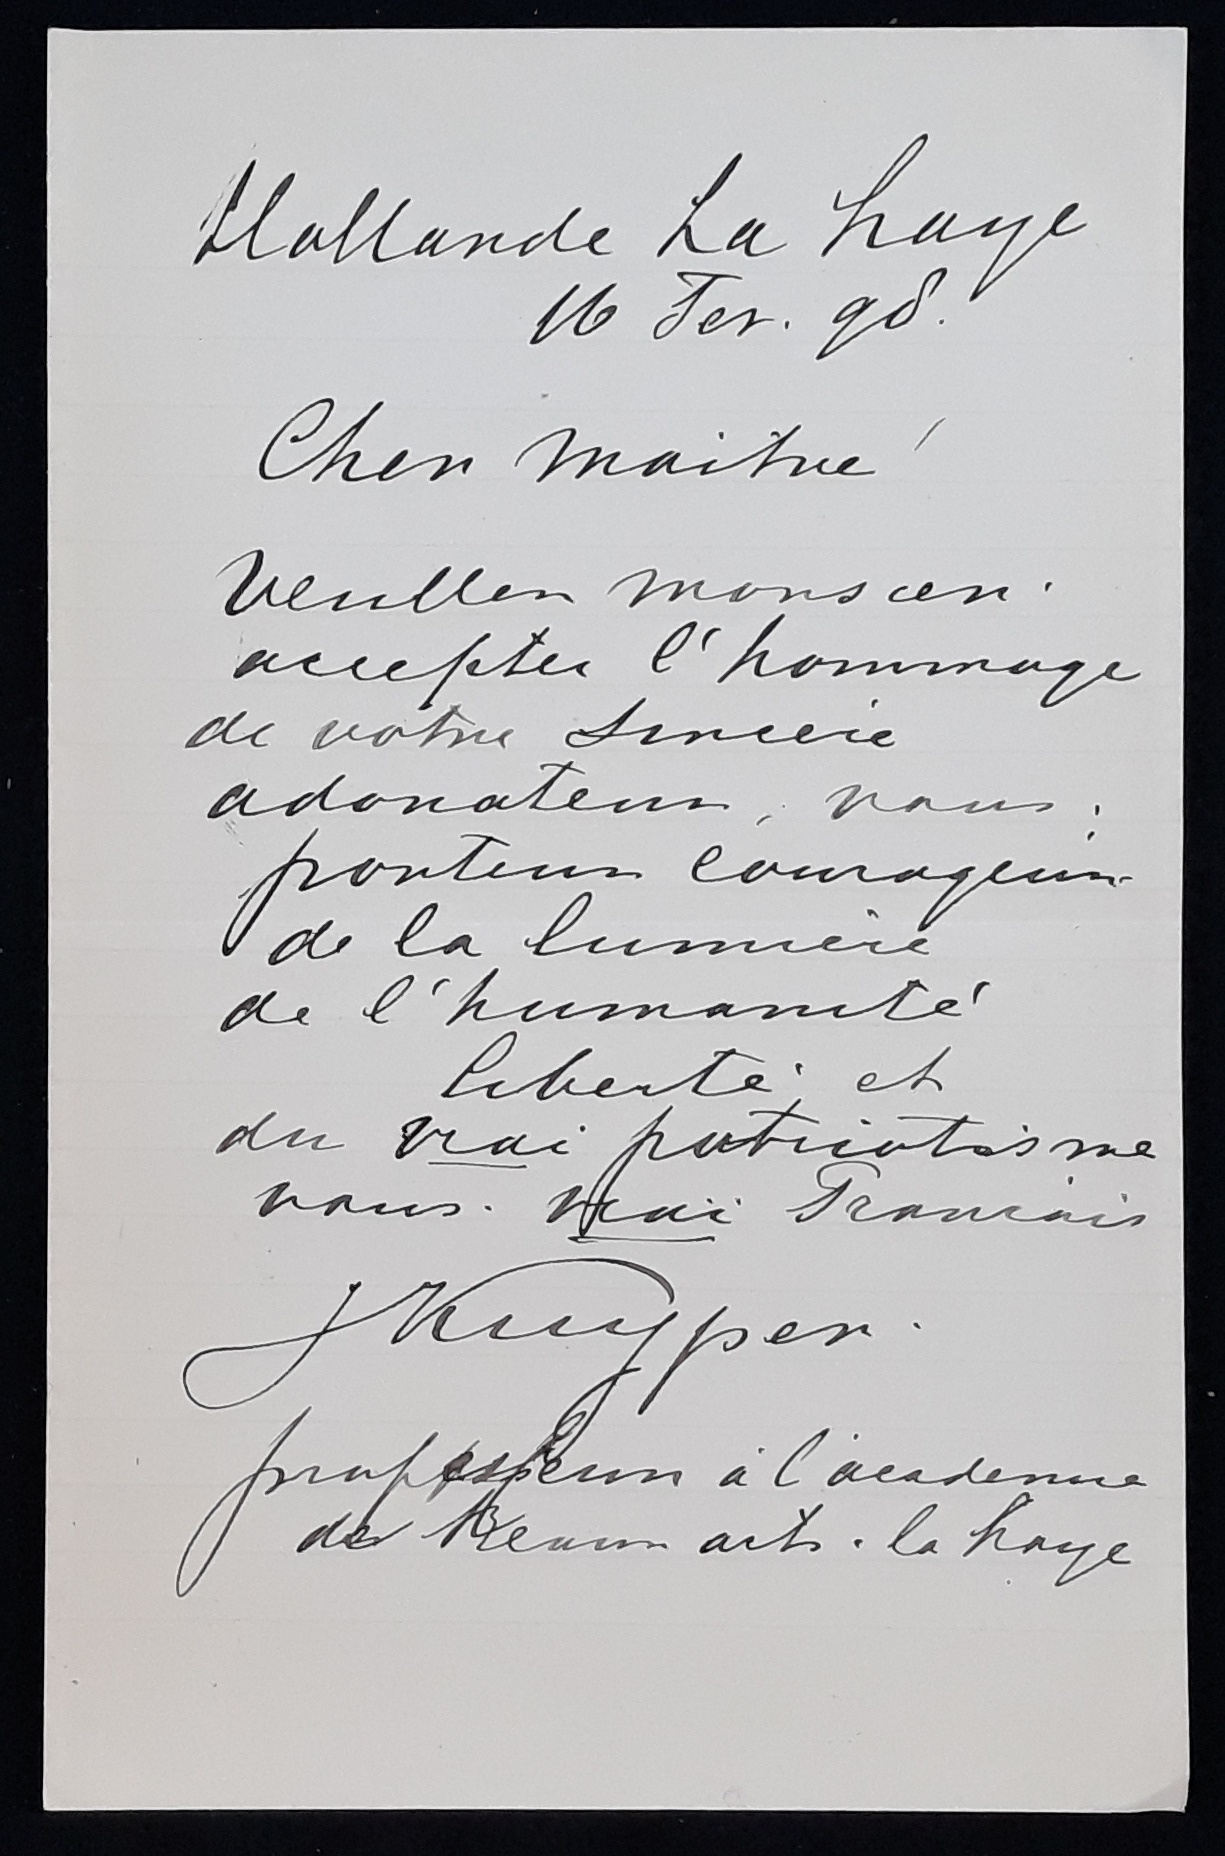 Hollande La Haye
16 Fev. 98.
Cher Maitre!
Veuller monsieur.
accepter l'hommage
de votre sincere
adorateur, vous,
porteur courageux
de la lumière
de l'humanité
liberté et
du vrai patriotisme
vous. vrai Francais
J Kuyper.
professeur à l'academie
de Beaux arts. la Haye